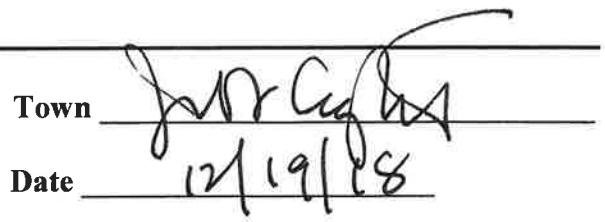 Town
Date 12/19/18